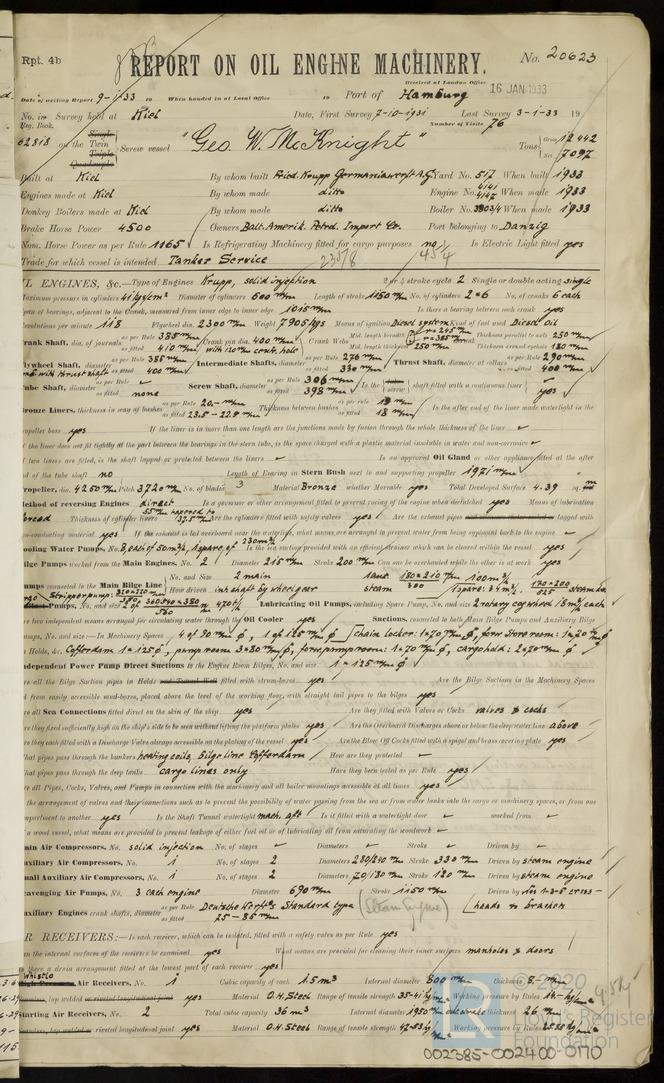 Rpt. 4b
REPORT ON OIL ENGINE MACHINERY.
No. 20623
Received at London Office 16 JAN 1933
Date of writing Report 9-1-33 19 When handed in at Local Office 19 Port of Hamburg
No. in Survey held at Kiel Date, First Survey 7-10-1931 Last Survey 3-1-33 19
Reg. Book. Number of Visits 76
62818 on the Single Twin Triple Quadruple Screw vessel "Geo. W. McKnight" Tons Gross 12442 Net 7097
Built at Kiel By whom built Fried. Krupp Germaniawerft A.G. Yard No. 517 When built 1933
Engines made at Kiel By whom made ditto Engine No. 4141 4142 When made 1933
Donkey Boilers made at Kiel By whom made ditto Boiler No. 3803/4 When made 1933
Brake Horse Power 4500 Owners Balt. Amerik. Petrol. Import Co. Port belonging to Danzig
Nom. Horse Power as per Rule 1165 Is Refrigerating Machinery fitted for cargo purposes no Is Electric Light fitted yes
Trade for which vessel is intended Tanker Service
OIL ENGINES, &c.—Type of Engines Krupp, solid injection 2 or 4 stroke cycle 2 Single or double acting single
Maximum pressure in cylinders 41 kg/cm² Diameter of cylinders 600 m/m Length of stroke 1150 m/m No. of cylinders 2×6 No. of cranks 6 each
Span of bearings, adjacent to the Crank, measured from inner edge to inner edge 1015 m/m Is there a bearing between each crank yes
Revolutions per minute 118 Flywheel dia. 2300 m/m Weight 7905 kgs Means of ignition Diesel system Kind of fuel used Diesel Oil
Crank Shaft, dia. of journals as per Rule 385 m/m as fitted 410 m/m Crank pin dia. 400 m/m with 120 m/m centr. hole Crank Webs Mid. length breadth Mid. length thickness 250 m/m Thickness parallel to axis 250 m/m Thickness around eyehole 180 m/m
Flywheel Shaft, diameter as per Rule 385 m/m as fitted 400 m/m Intermediate Shafts, diameter as per Rule 276 m/m as fitted 330 m/m Thrust Shaft, diameter at collars as per Rule 290 m/m as fitted 400 m/m
Tube Shaft, diameter as per Rule as fitted none Screw Shaft, diameter as per Rule 306 m/m as fitted 398 m/m Is the tube screw shaft fitted with a continuous liner yes
Bronze Liners, thickness in way of bushes as per Rule 20.- m/m as fitted 23.5 - 22.8 m/m Thickness between bushes as per rule 15 m/m as fitted 18 m/m Is the after end of the liner made watertight in the
propeller boss yes If the liner is in more than one length are the junctions made by fusion through the whole thickness of the liner
If the liner does not fit tightly at the part between the bearings in the stern tube, is the space charged with a plastic material insoluble in water and non-corrosive
If two liners are fitted, is the shaft lapped or protected between the liners Is an approved Oil Gland or other appliance fitted at the after
end of the tube shaft no Length of Bearing in Stern Bush next to and supporting propeller 1921 m/m
Propeller, dia. 4250 m/m Pitch 3720 m/m No. of blades 3 Material Bronze whether Moveable yes Total Developed Surface 4.39 sq. m
Method of reversing Engines direct Is a governor or other arrangement fitted to prevent racing of the engine when declutched yes Means of lubrication
forced Thickness of cylinder liners 55 m/m tapered to 37.5 m/m Are the cylinders fitted with safety valves yes Are the exhaust pipes lagged with
non-conducting material yes If the exhaust is led overboard near the waterline, what means are arranged to prevent water from being syphoned back to the engine
Cooling Water Pumps, No. 3, each of 50 m³/h, 1 spare, of 230 m³/h Is the sea suction provided with an efficient strainer which can be cleared within the vessel yes
Bilge Pumps worked from the Main Engines, No. 2 Diameter 215 m/m Stroke 200 m/m Can one be overhauled while the other is at work yes
Pumps connected to the Main Bilge Line No. and Size 2 main How driven ink shaft by wheelgear steam
Lubricating Oil Pumps, including Spare Pump, No. and size 2 rotary cogwheel 15 m³/h each
Are two independent means arranged for circulating water through the Oil Cooler yes Suctions, connected to both Main Bilge Pumps and Auxiliary Bilge
Pumps, No. and size:—In Machinery Spaces 4 of 90 m/m ø, 1 of 125 m/m ø chain locker: 1×70 m/m ø, forw. Storeroom: 1×70 m/m ø
In Holds, &c. Cofferdam 1×125 ø, pumproom 3×80 m/m ø, forw. pumproom: 1×70 m/m ø, cargohold: 2×70 m/m ø
Independent Power Pump Direct Suctions to the Engine Room Bilges, No. and size 1 = 125 m/m ø
Are all the Bilge Suction pipes in Holds and Tunnel Well fitted with strum-boxes yes Are the Bilge Suctions in the Machinery Spaces
led from easily accessible mud-boxes, placed above the level of the working floor, with straight tail pipes to the bilges yes
Are all Sea Connections fitted direct on the skin of the ship yes Are they fitted with Valves or Cocks valves & cocks
Are they fixed sufficiently high on the ship's side to be seen without lifting the platform plates yes Are the Overboard Discharges above or below the deep water line above
Are they each fitted with a Discharge Valve always accessible on the plating of the vessel yes Are the Blow Off Cocks fitted with a spigot and brass covering plate yes
What pipes pass through the bunkers heating coils, Bilge line Cofferdam How are they protected
What pipes pass through the deep tanks cargo lines only Have they been tested as per Rule yes
Are all Pipes, Cocks, Valves, and Pumps in connection with the machinery and all boiler mountings accessible at all times yes
Is the arrangement of valves and their connections such as to prevent the possibility of water passing from the sea or from water tanks into the cargo or machinery spaces, or from one
compartment to another yes Is the Shaft Tunnel watertight mach. aft Is it fitted with a watertight door worked from
If a wood vessel, what means are provided to prevent leakage of either fuel oil or of lubricating oil from saturating the woodwork
Main Air Compressors, No. solid injection No. of stages Diameters Stroke Driven by
Auxiliary Air Compressors, No. 1 No. of stages 2 Diameters 280/240 m/m Stroke 330 m/m Driven by steam engine
Small Auxiliary Air Compressors, No. 1 No. of stages 2 Diameters 70/130 m/m Stroke 120 m/m Driven by steam engine
Scavenging Air Pumps, No. 3 each engine Diameter 690 m/m Stroke 1150 m/m Driven by Nos 1-3-5 cross-
Auxiliary Engines crank shafts, diameter as per Rule Deutsche Werft's Standard type as fitted 25 - 85 m/m (Steam Engine) heads to brackets
AIR RECEIVERS:—Is each receiver, which can be isolated, fitted with a safety valve as per Rule yes
Can the internal surfaces of the receivers be examined yes What means are provided for cleaning their inner surfaces manholes & doors
Is there a drain arrangement fitted at the lowest part of each receiver yes
Whistle
High Pressure Air Receivers, No. 1 Cubic capacity of each 1.5 m³ Internal diameter 800 m/m thickness 8.- m/m
Seamless, lap welded or riveted longitudinal joint yes Material O.H. Steel Range of tensile strength 35-41 kg Working pressure by Rules
Starting Air Receivers, No. 2 Total cubic capacity 36 m³ Internal diameter 1950 m/m thickness 26 m/m
Seamless, lap welded or riveted longitudinal joint yes Material O.H. Steel Range of tensile strength 42-53 Working pressure by Rules
© 2020
Lloyd's Register
Foundation
002385-002400-0170